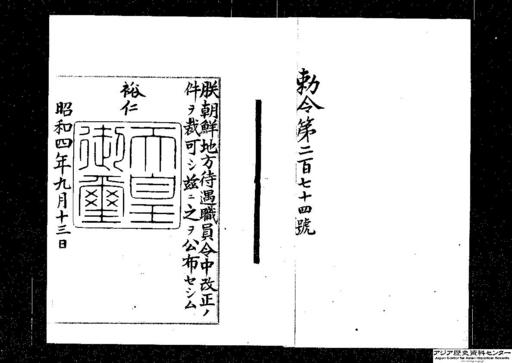 勅令第二百七十四號
朕朝鮮地方待遇職員令中改正ノ
件ヲ裁可シ茲ニ之ヲ公布セシム
裕仁
天皇
御璽
昭和四年九月十三日
アジア歴史資料センター
Japan Center for Asian Historical Records